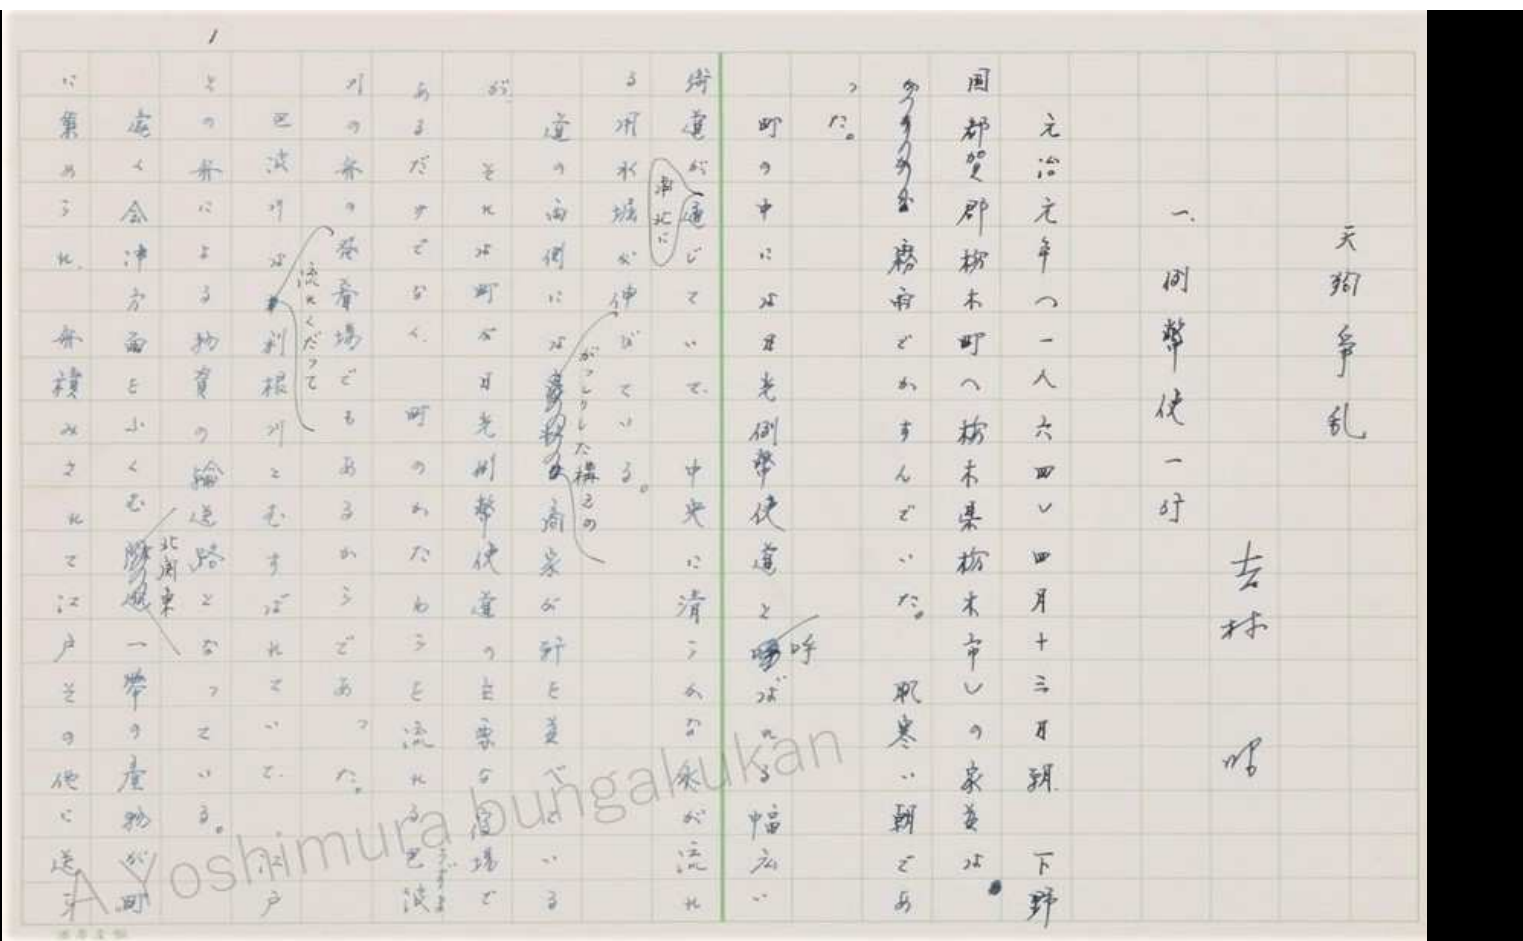 天狗争乱
吉村 昭
一、例幣使一行
元治元年(一八六四)四月十三日朝、下野
国都賀郡栃木町(栃木県栃木市)の家並は、
霧雨でかすんでいた。肌寒い朝であ
った。
町の中には日光例幣使道と呼ばれる幅広い
街道が南北に通じていて、中央に清らかな水が流れ
る用水堀が伸びている。
道の両側にはがっしりした構えの商家が軒を並べている
が、それは町が日光例幣使道の主要な宿場で
あるだけでなく、町のかたわらを流れる巴波
うずま
川の舟の発着場でもあるからであった。
巴波川は流れくだって利根川とむすばれていて、江戸
との舟による物資の輸送路となっている。
遠く会津方面をふくむ北関東一帯の産物が町
に集められ、舟積みされて江戸その他に送ら
1
A.Yoshimura bungakukan